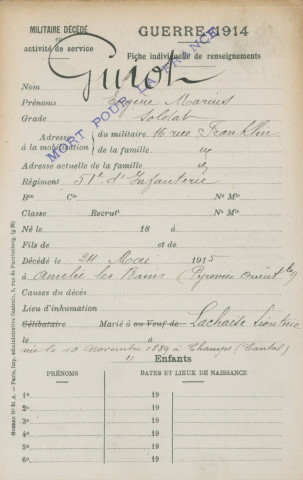 MILITAIRE DÉCÉDÉ
en
activité de service
GUERRE 1914
Fiche individuelle de renseignements
MORT POUR LA FRANCE
Nom Guiot
Prénoms Eugène Marius
Grade Soldat
Adresse à la mobilisation du militaire 16 rue Franklin
de la famille id
Adresse actuelle de la famille id
Régiment 51e d'Infanterie
Bon Cie No Mle
Classe Recrut No Mle
Né le 18 à
Fils de et de
Décédé le 24 Mai 1915
à Amélie les Bains (Pyrénées Orient les)
Causes du décès
Lieu d'inhumation
Célibataire Marié à ou Veuf de Lachaize Léontine
née le 10 novembre 1889 à Champs (Cantal)
Enfants
PRÉNOMS DATES ET LIEUX DE NAISSANCE
1o 19
2o 19
3o 19
4o 19
5o 19
6o 19